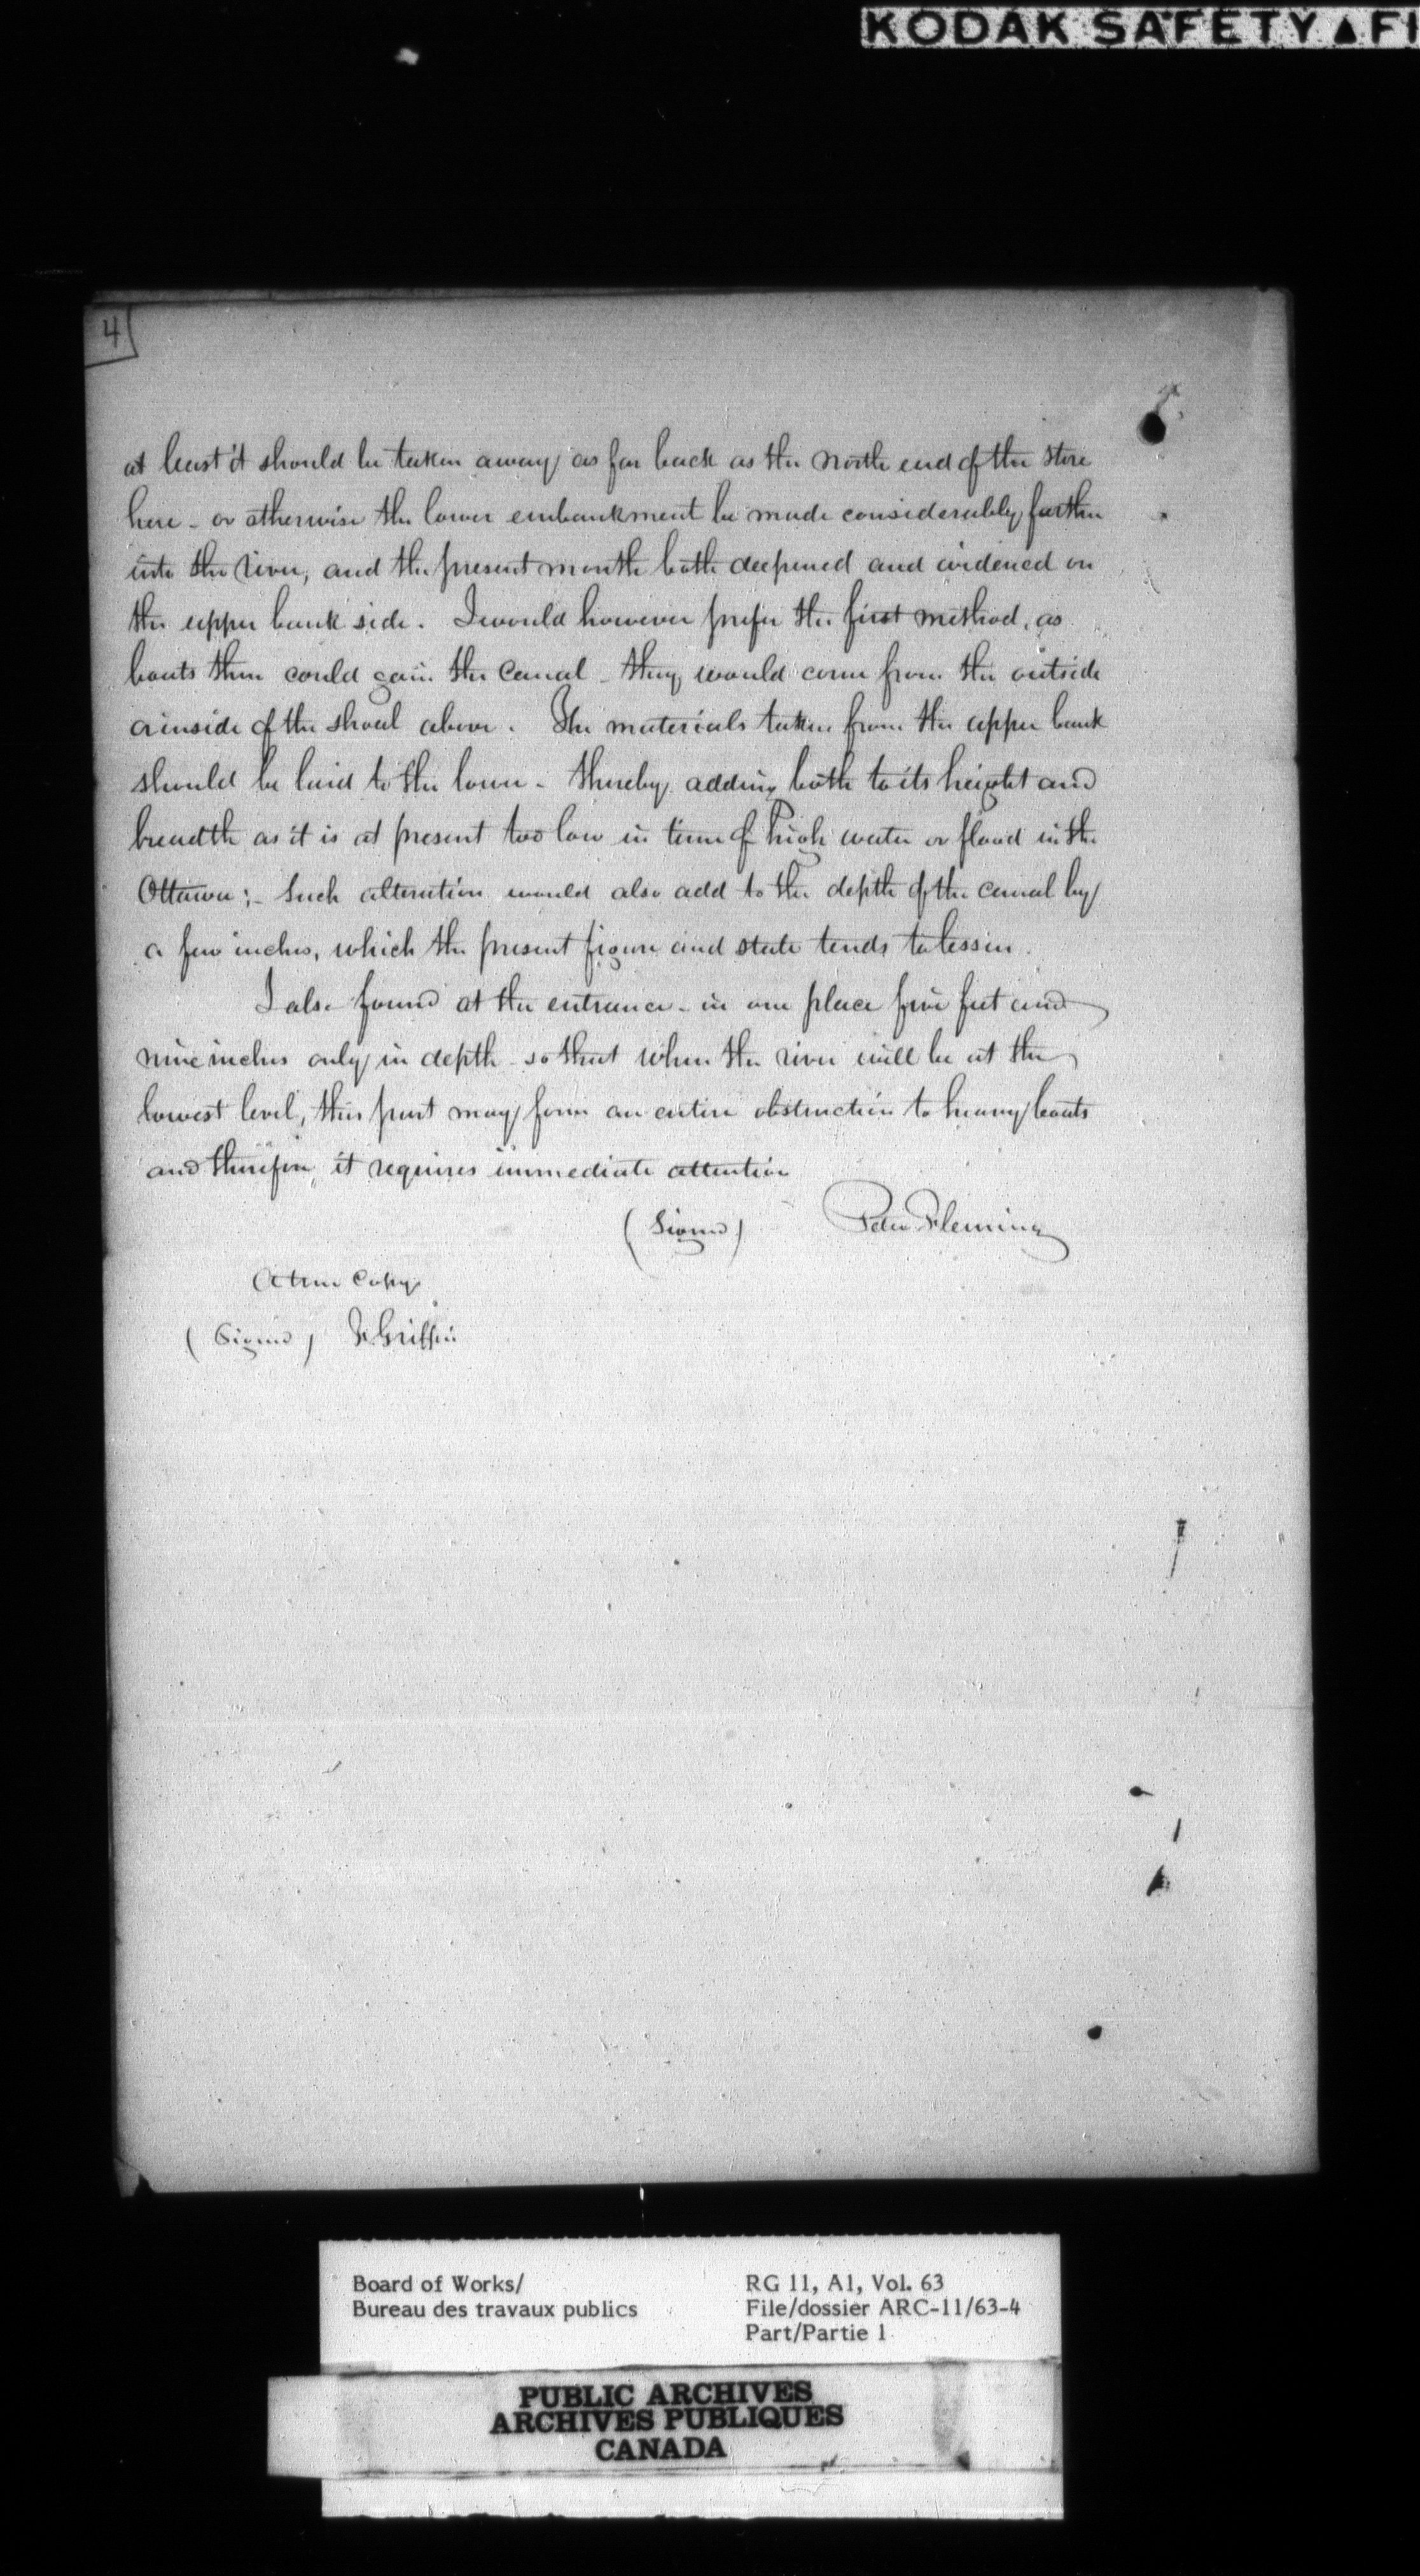 KODAK SAFETY ▲ FI
4
at least it should be taken away as far back as the north end of the store
here - or otherwise the lower embankment be made considerably further
into the river, and the present mouth both deepened and widened on
the upper bank side. I would however prefer the first method, as
boats then could gain the Canal - they would come from the outside
or inside of the shoal above. The materials taken from the upper bank
should be laid to the lower - thereby adding both to its height and
breadth as it is at present too low in time of high water or flood in the
Ottawa ;- Such alteration would also add to the depth of the canal by
a few inches, which the present figure and state tends to lessen.
I also found at the entrance - in one place five feet and
nine inches only in depth - so that when the river will be at the
lowest level, this part may form an entire obstruction to heavy boats
and therefore it requires immediate attention
(Signed) Peter Fleming
A true Copy
(Signed) Griffin
Board of Works/
Bureau des travaux publics
RG 11, A1, Vol. 63
File/dossier ARC-11/63-4
Part/Partie 1
PUBLIC ARCHIVES
ARCHIVES PUBLIQUES
CANADA